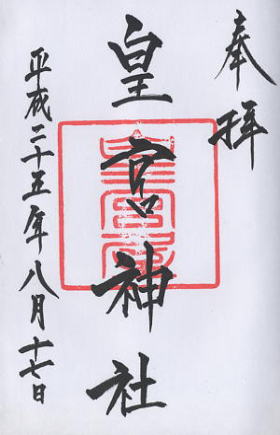 奉拝
皇宮神社
平成二十五年八月十七日